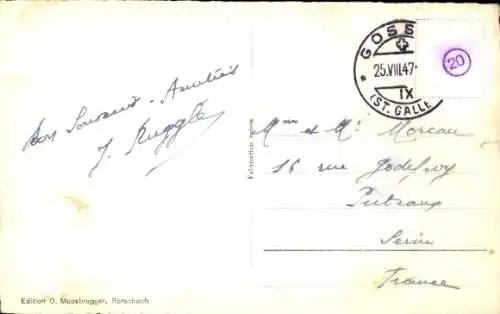 Bon Souvenir - Amitiés
J. Ruggle
GOSS
25.VIII.47-
IX
(ST. GALLE
20
Mme et Mr Moreau
16 rue Godefroy
Puteaux
Seine
France
Edition O. Moosbrugger, Rorschach